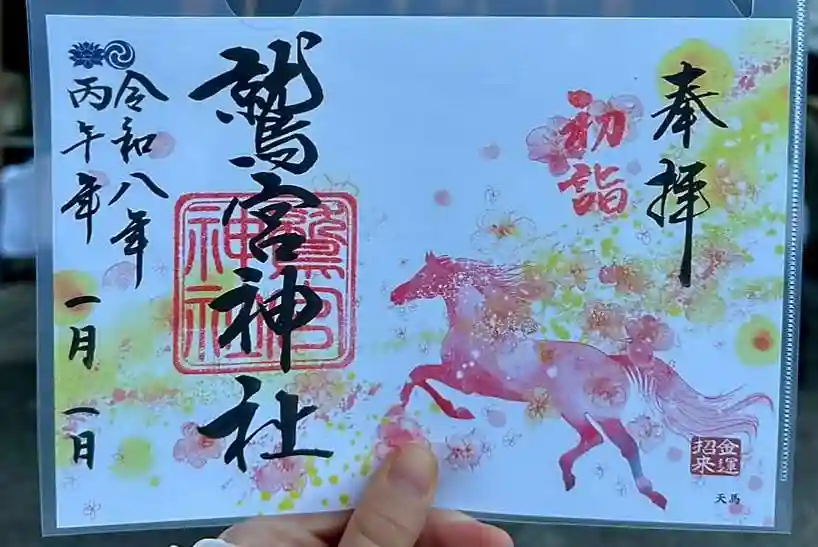 奉拝
初詣
金運
招来
天馬
鷲宮神社
鷲宮
神社
令和八年
丙午年
一月一日